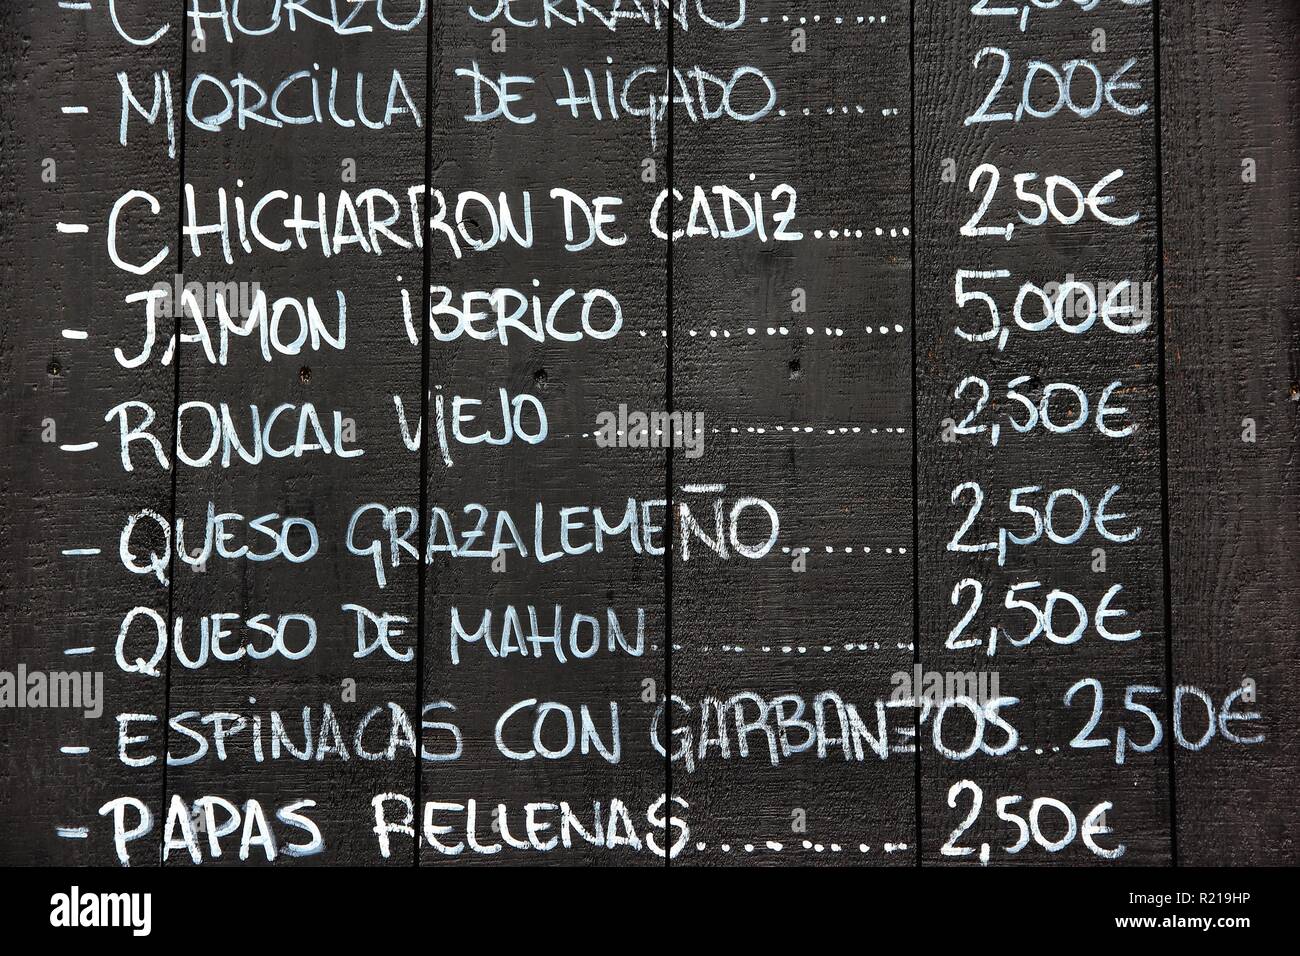 - CHORIZO SERRANO....... 2,00€
- MORCILLA DE HIGADO....... 2,00€
- CHICHARRON DE CADIZ....... 2,50€
- JAMON IBERICO............. 5,00€
- RONCAL VIEJO.................. 2,50€
- QUESO GRAZALEMEÑO....... 2,50€
- QUESO DE MAHON............. 2,50€
- ESPINACAS CON GARBANZOS... 2,50€
- PAPAS RELLENAS........... 2,50€
alamy stock photo
R219HP
www.alamy.com